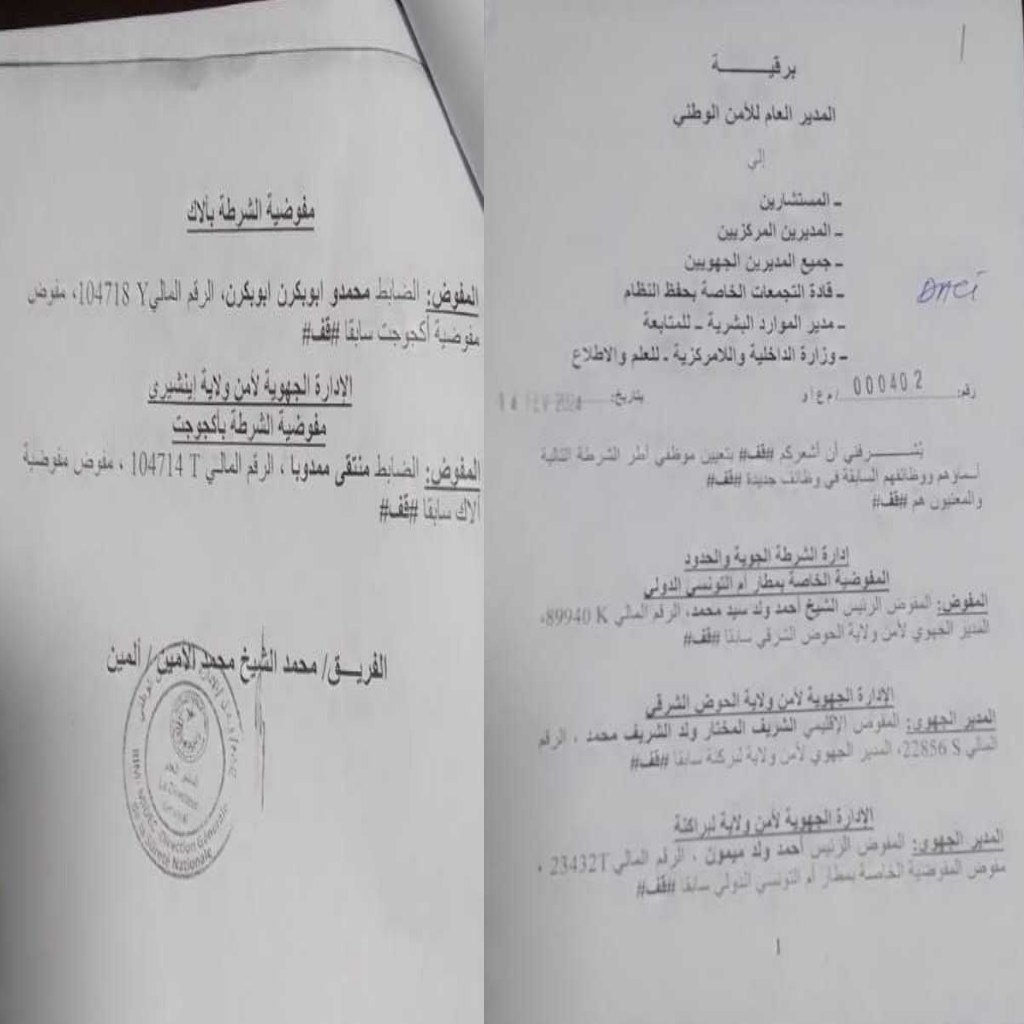 برقيـــــة
المدير العام للأمن الوطني
إلى
ـ المستشارين
ـ المديرين المركزيين
ـ جميع المديرين الجهويين
ـ قادة التجمعات الخاصة بحفظ النظام
ـ مدير الموارد البشرية ـ للمتابعة
ـ وزارة الداخلية واللامركزية ـ للعلم والاطلاع
رقم: 000402 / م ع أ و بتاريخ: 14 FEV 2024
يُشـــــرفني أن أشعركم #قف# بتعيين موظفي أطر الشرطة التالية
أسماؤهم ووظائفهم السابقة في وظائف جديدة #قف#
والمعنيون هم #قف#
إدارة الشرطة الجوية والحدود
المفوضية الخاصة بمطار أم التونسي الدولي
المفوض: المفوض الرئيس الشيخ أحمد ولد سيد محمد، الرقم المالي 89940 K،
المدير الجهوي لأمن ولاية الحوض الشرقي سابقا #قف#
الإدارة الجهوية لأمن ولاية الحوض الشرقي
المدير الجهوي: المفوض الإقليمي الشريف المختار ولد الشريف محمد ، الرقم
المالي 22856 S، المدير الجهوي لأمن ولاية لبركنة سابقا #قف#
الإدارة الجهوية لأمن ولاية لبراكنة
المدير الجهوي: المفوض الرئيس أحمد ولد ميمون ، الرقم المالي 23432T ،
مفوض المفوضية الخاصة بمطار أم التونسي الدولي سابقا #قف#
1
مفوضية الشرطة بألاك
المفوض: الضابط محمدو ابوبكرن ابوبكرن، الرقم المالي 104718 Y، مفوض
مفوضية أكجوجت سابقا #قف#
الإدارة الجهوية لأمن ولاية إينشيري
مفوضية الشرطة بأكجوجت
المفوض: الضابط منتقى ممدوبا ، الرقم المالي 104714 T ، مفوض مفوضية
ألاك سابقا #قف#
الفريــق/ محمد الشيخ محمد الأمين / ألمين
Direction Générale
de la Sûreté Nationale